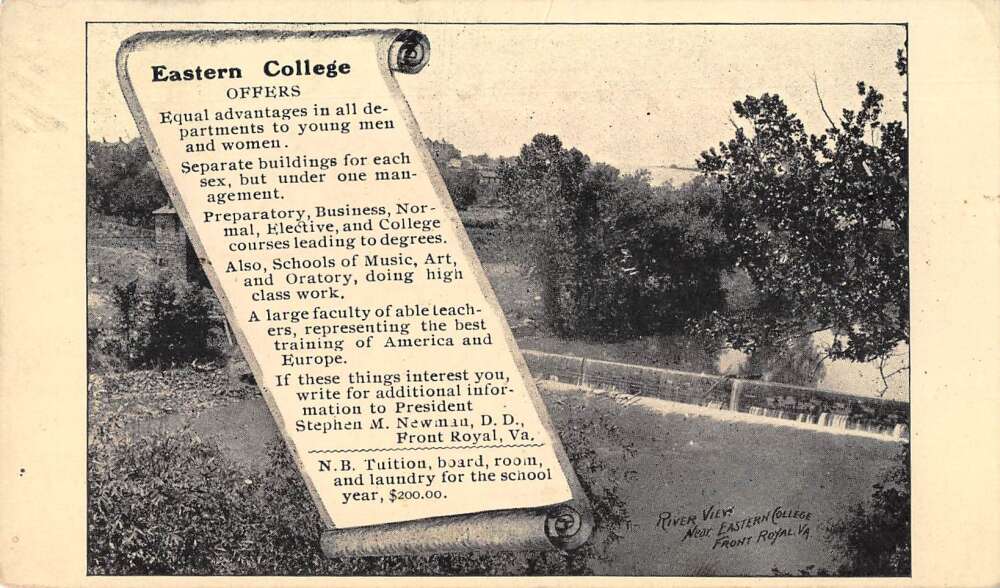 Eastern College
OFFERS
Equal advantages in all de-
partments to young men
and women.
Separate buildings for each
sex, but under one man-
agement.
Preparatory, Business, Nor-
mal, Elective, and College
courses leading to degrees.
Also, Schools of Music, Art,
and Oratory, doing high
class work.
A large faculty of able teach-
ers, representing the best
training of America and
Europe.
If these things interest you,
write for additional infor-
mation to President
Stephen M. Newman, D. D.,
Front Royal, Va.
N.B. Tuition, board, room,
and laundry for the school
year, $200.00.
RIVER VIEW
NEAR EASTERN COLLEGE
FRONT ROYAL. VA